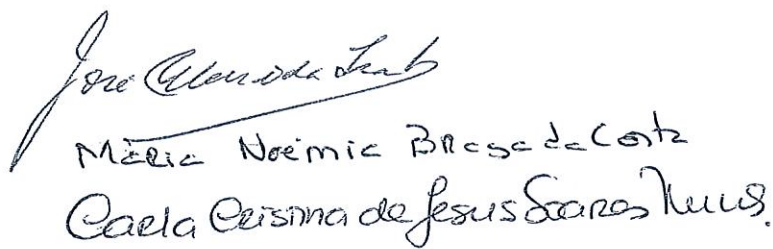 José Almeida
Maria Noémia Braga da Costa
Carla Cristina de Jesus Soares Nunes